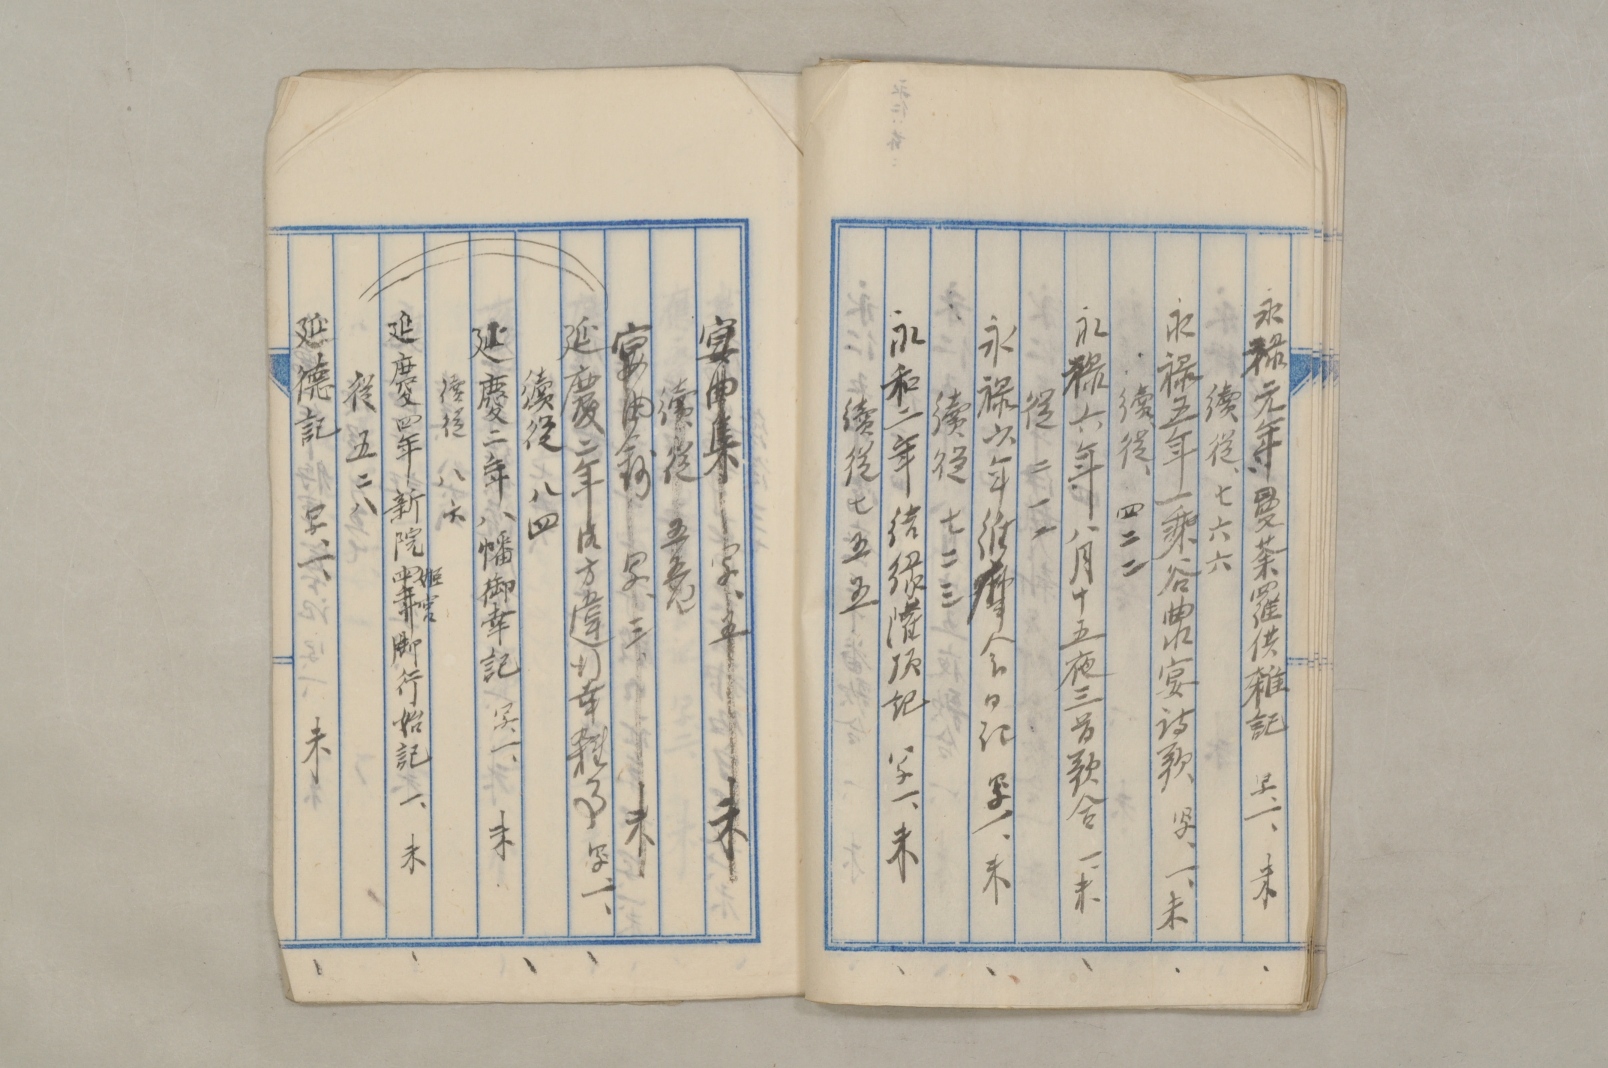 永禄元年曼荼羅供雑記 写一、未
續従、七六六
永禄五年一乗谷曲水宴詩歌 写、一、未
續従、四二二
永禄六年八月十五夜三首歌合 一、未
従 二一二
永禄六年維摩会日記 写一、未
續従 七二三
永和二年結縁灌頂記 写一、未
續従 七五五
宴曲集 写、五 未
續従 五五
宴曲 写、三、 未
延慶二年 方違行幸 写一、
續従 八四
延慶二年八幡御幸記 写一、 未
續従 八六
延慶四年新院姫宮御行始記 一、 未
従 五二八
延徳記 写、一、 未